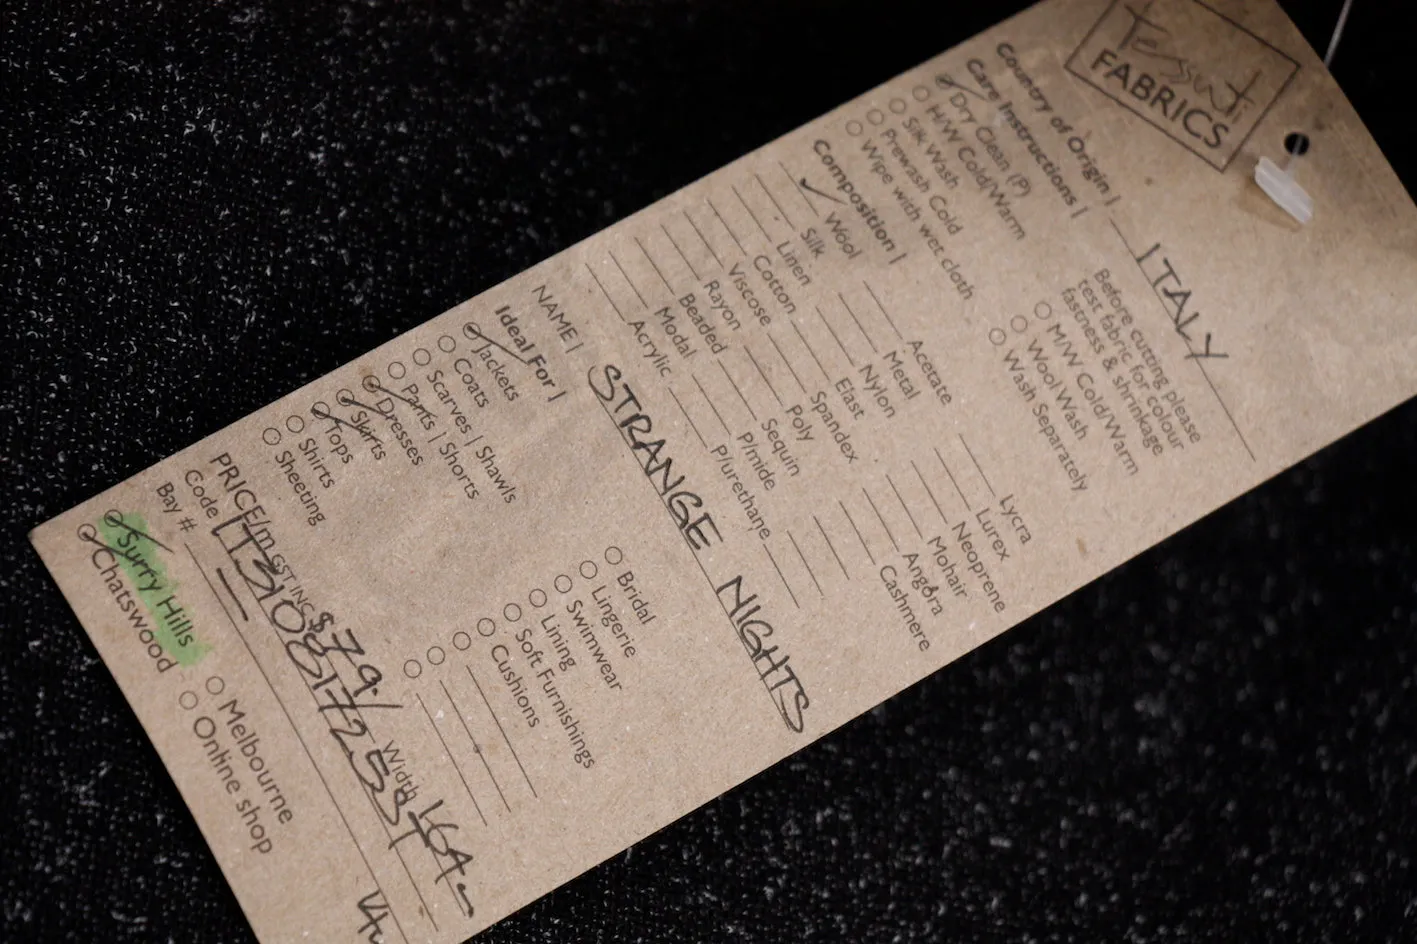 Tessuti
FABRICS
Country of Origin | ITALY
Care Instructions |
Dry Clean (P)
H/W Cold/Warm
Silk Wash
Prewash Cold
Wipe with wet cloth
Before cutting please
test fabric for colour
fastness & shrinkage
M/W Cold/Warm
Wool Wash
Wash Separately
Composition |
✓ Wool
Silk
Linen
Cotton
Viscose
Rayon
Beaded
Modal
Acrylic
Acetate
Metal
Nylon
Elast
Spandex
Poly
Sequin
P/mide
P/urethane
Lycra
Lurex
Neoprene
Mohair
Angora
Cashmere
NAME | STRANGE NIGHTS
Ideal For |
Jackets
Coats
Scarves | Shawls
Pants | Shorts
Dresses
Skirts
Tops
Shirts
Sheeting
Bridal
Lingerie
Swimwear
Lining
Soft Furnishings
Cushions
PRICE/m GST INC $79/ Width 164
Code |
Bay # —
Surry Hills
Chatswood
Melbourne
Online shop